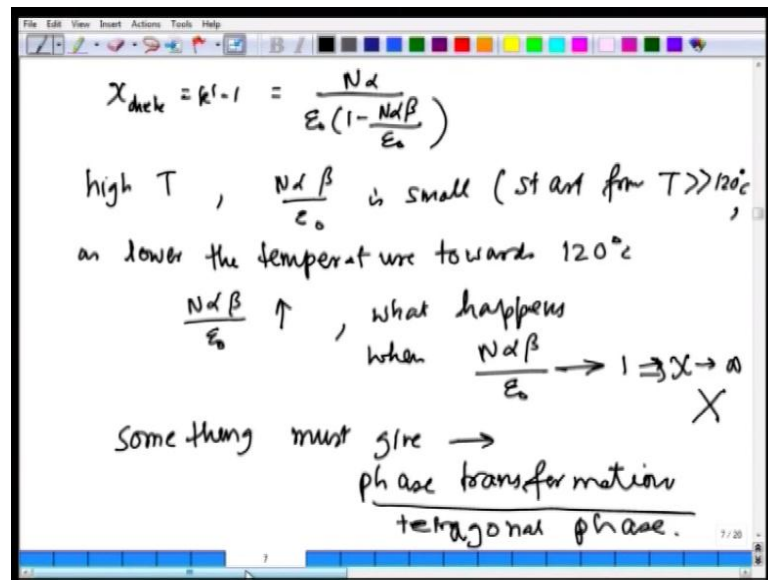 File Edit View Insert Actions Tools Help
χ = k'-1 = Nα / ε₀(1 - Nαβ/ε₀)
high T , Nαβ/ε₀ is small (start from T>>120°c,
as lower the temperature towards 120°c
Nαβ/ε₀ ↑ , what happens
when Nαβ/ε₀ → 1 ⇒ χ → ∞
X
Something must give →
phase transformation
tetragonal phase.
7/20
7